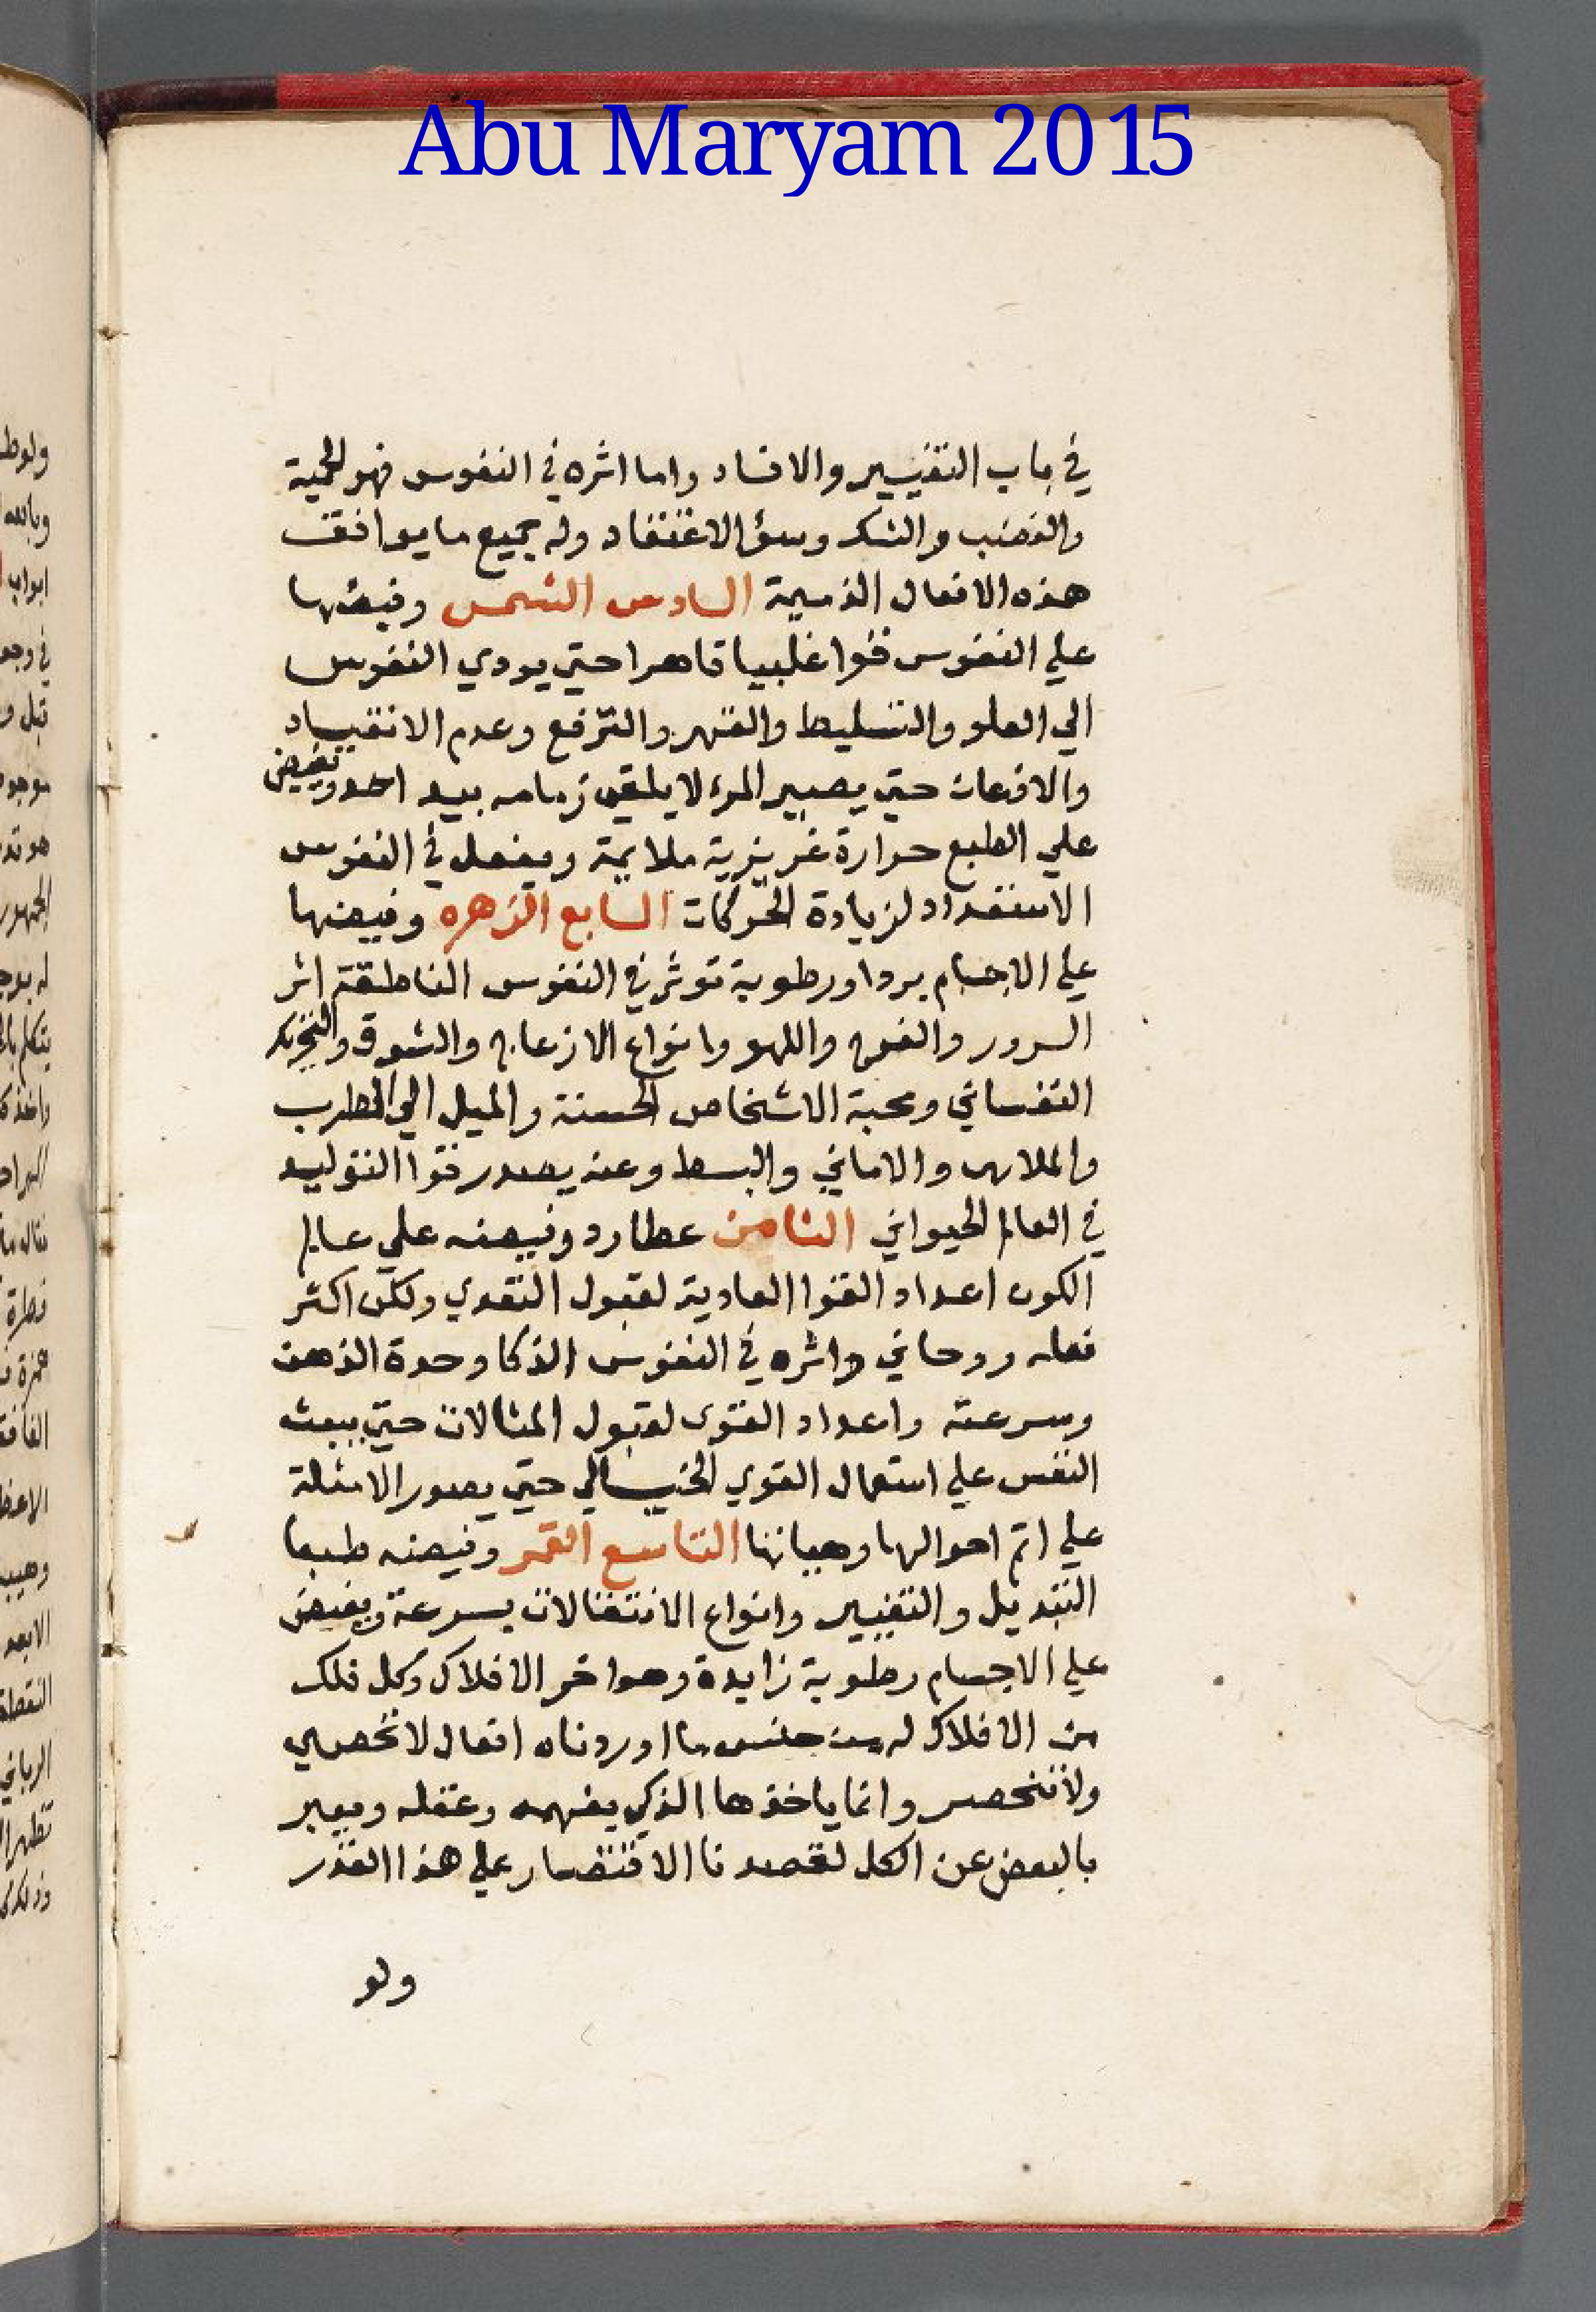 Abu Maryam 2015
في باب التغيير والافساد واما اثره في النفوس فهو الحمية
والغضب والشك وسؤ الاعتقاد وله جميع ما يوافق
هذه الافعال الذميمة السادس الشمس وفيضها
علي النفوس قوا غلبيا قاهرا حتي يودي النفوس
الي العلو والتسليط والقهر والترفع وعدم الانقياد
والاذعان حتي يصير المرء لا يلقي زمامه بيد احد وتفيض
علي الطبع حرارة غريزية ملايمة ويفعل في النفوس
الاستعداد لزيادة الحركات السابع الزهره وفيضها
علي الاجسام بردا ورطوبة توثر في النفوس الناطقة اثر
السرور والفرح واللهو وانواع الازعاج والشوق والتحريك
النفساني ومحبة الاشخاص الحسنة والميل الي الطرب
والملاهي والاماني والبسط وعنه يصدر قوا التوليد
في العالم الحيواني الثامن عطارد وفيضه علي عالم
الكون اعداد القوا العادية لقبول التعدي ولكن اكثر
فعله روحاني واثره في النفوس الذكا وحدة الذهن
وسرعته واعداد القوي لقبول المثالات حتي يبعث
النفس علي استعمال القوي الخيالي حتي يصور الامثلة
علي اتم احوالها وهياتها التاسع القمر وفيضه طبعا
التبديل والتغيير وانواع الانتقالات بسرعة ويفيض
علي الاجسام رطوبة زايدة وهو اخر الافلاك وكل فلك
من الافلاك له من جنس ما اوردناه افعال لا تحصي
ولا تنحصر وانما ياخذها الذكي بفهمه وعقله ويعبر
بالبعض عن الكل لقصدنا الاقتصار علي هذا القدر
ولو